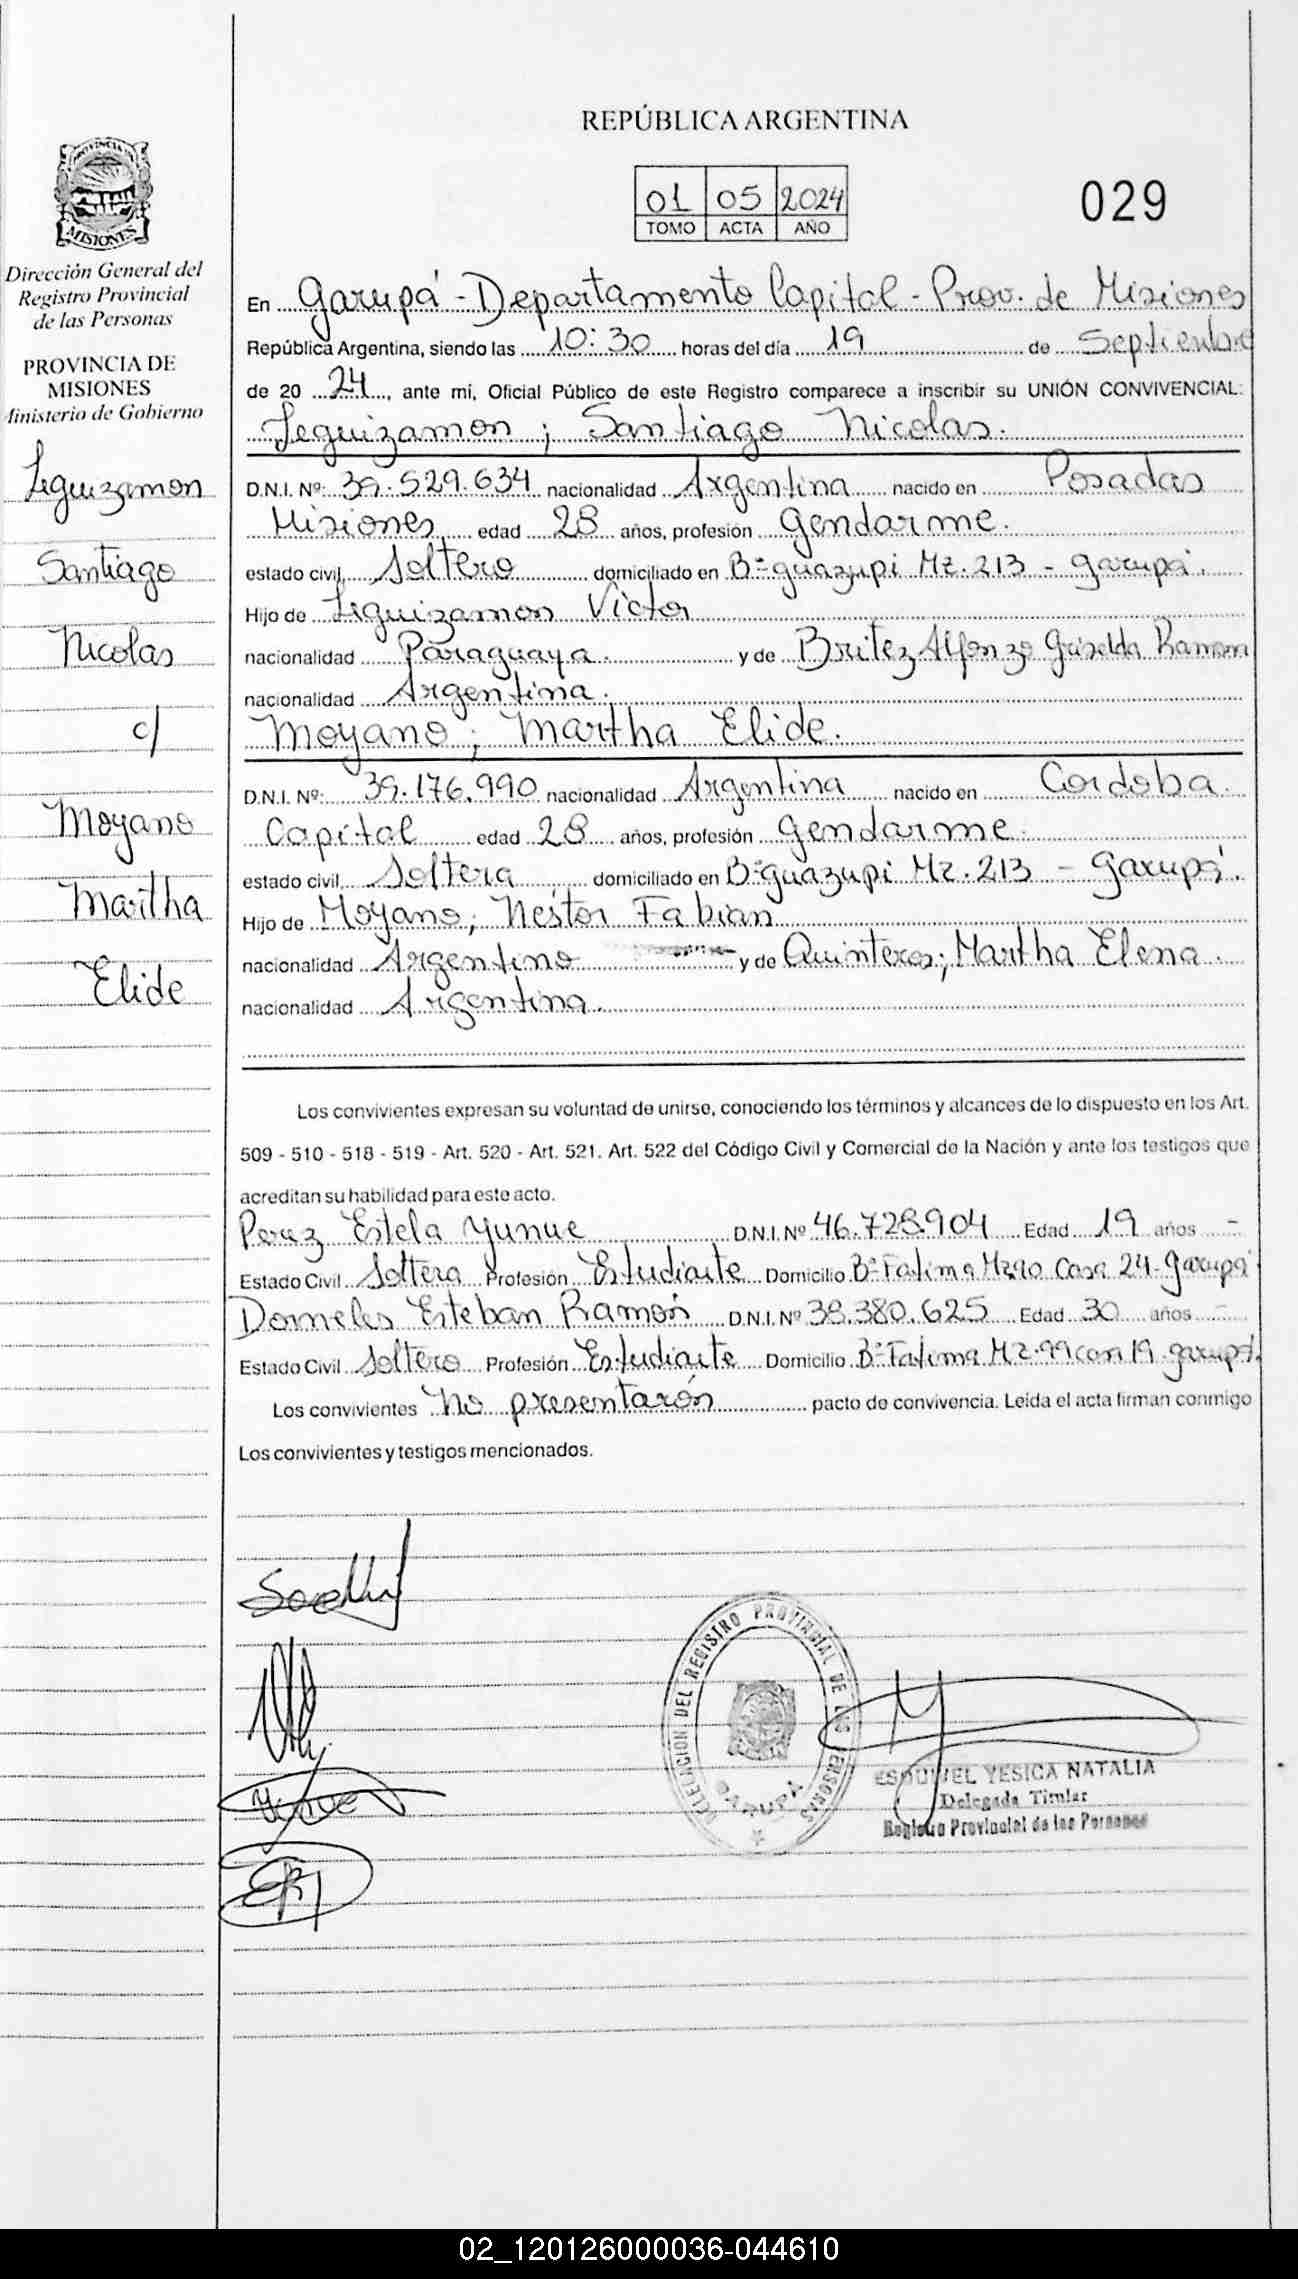 REPÚBLICA ARGENTINA
01 05 2024
TOMO ACTA AÑO
029
PROVINCIA DE
MISIONES
Dirección General del
Registro Provincial
de las Personas
PROVINCIA DE
MISIONES
Ministerio de Gobierno
Leguizamon
Santiago
Nicolas
c/
Moyano
Martha
Elide
En Garupá - Departamento Capital - Prov. de Misiones
República Argentina, siendo las 10:30 horas del día 19 de Septiembre
de 20 24, ante mí, Oficial Público de este Registro comparece a inscribir su UNIÓN CONVIVENCIAL:
Leguizamon ; Santiago Nicolas.
D.N.I. Nº: 39.529.634 nacionalidad Argentina nacido en Posadas
Misiones edad 28 años, profesión Gendarme.
estado civil Soltero domiciliado en Bº Guazupi Mz. 213 - Garupá.
Hijo de Leguizamon Victor
nacionalidad Paraguaya. y de Britez Alfonzo Griselda Ramona
nacionalidad Argentina.
Moyano ; Martha Elide.
D.N.I. Nº: 39.176.990 nacionalidad Argentina nacido en Cordoba
Capital edad 28 años, profesión Gendarme.
estado civil Soltera domiciliado en Bº Guazupi Mz. 213 - Garupá.
Hijo de Moyano; Nestor Fabian
nacionalidad Argentino y de Quinteros; Martha Elena.
nacionalidad Argentina.
Los convivientes expresan su voluntad de unirse, conociendo los términos y alcances de lo dispuesto en los Art.
509 - 510 - 518 - 519 - Art. 520 - Art. 521. Art. 522 del Código Civil y Comercial de la Nación y ante los testigos que
acreditan su habilidad para este acto.
Perez Estela Yunue D.N.I. Nº 46.728.904 Edad 19 años -
Estado Civil Soltera Profesión Estudiante Domicilio Bº Fatima Casa 24 - Garupá
Dorneles Esteban Ramón D.N.I. Nº 38.380.625 Edad 30 años -
Estado Civil Soltero Profesión Estudiante Domicilio Bº Fatima Mz. 99 19 Garupá.
Los convivientes No presentarón pacto de convivencia. Leída el acta firman conmigo
Los convivientes y testigos mencionados.
DELEGACION DEL REGISTRO PROVINCIAL DE LAS PERSONAS
GARUPA
ESQUIVEL YESICA NATALIA
Delegada Titular
Registro Provincial de las Personas
02_120126000036-044610